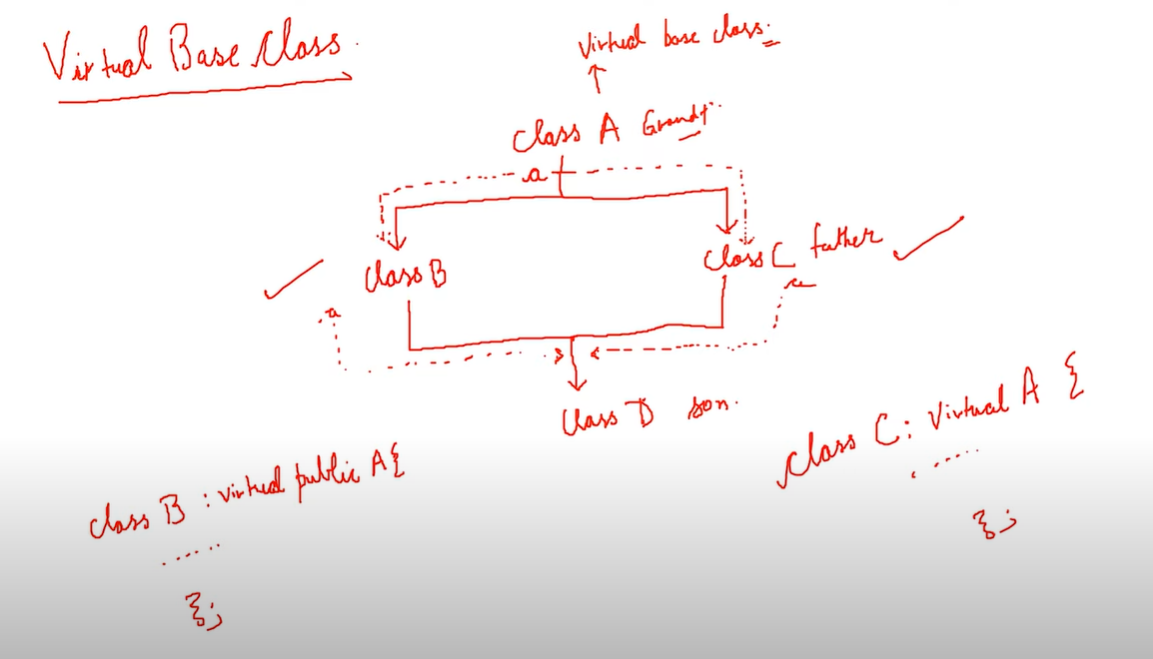 Virtual Base Class.
Virtual base class.
Class A
a
Class B
Class C father
a
a
Class D son.
class B : virtual public A{
.....
};
class C : virtual A {
.....
};